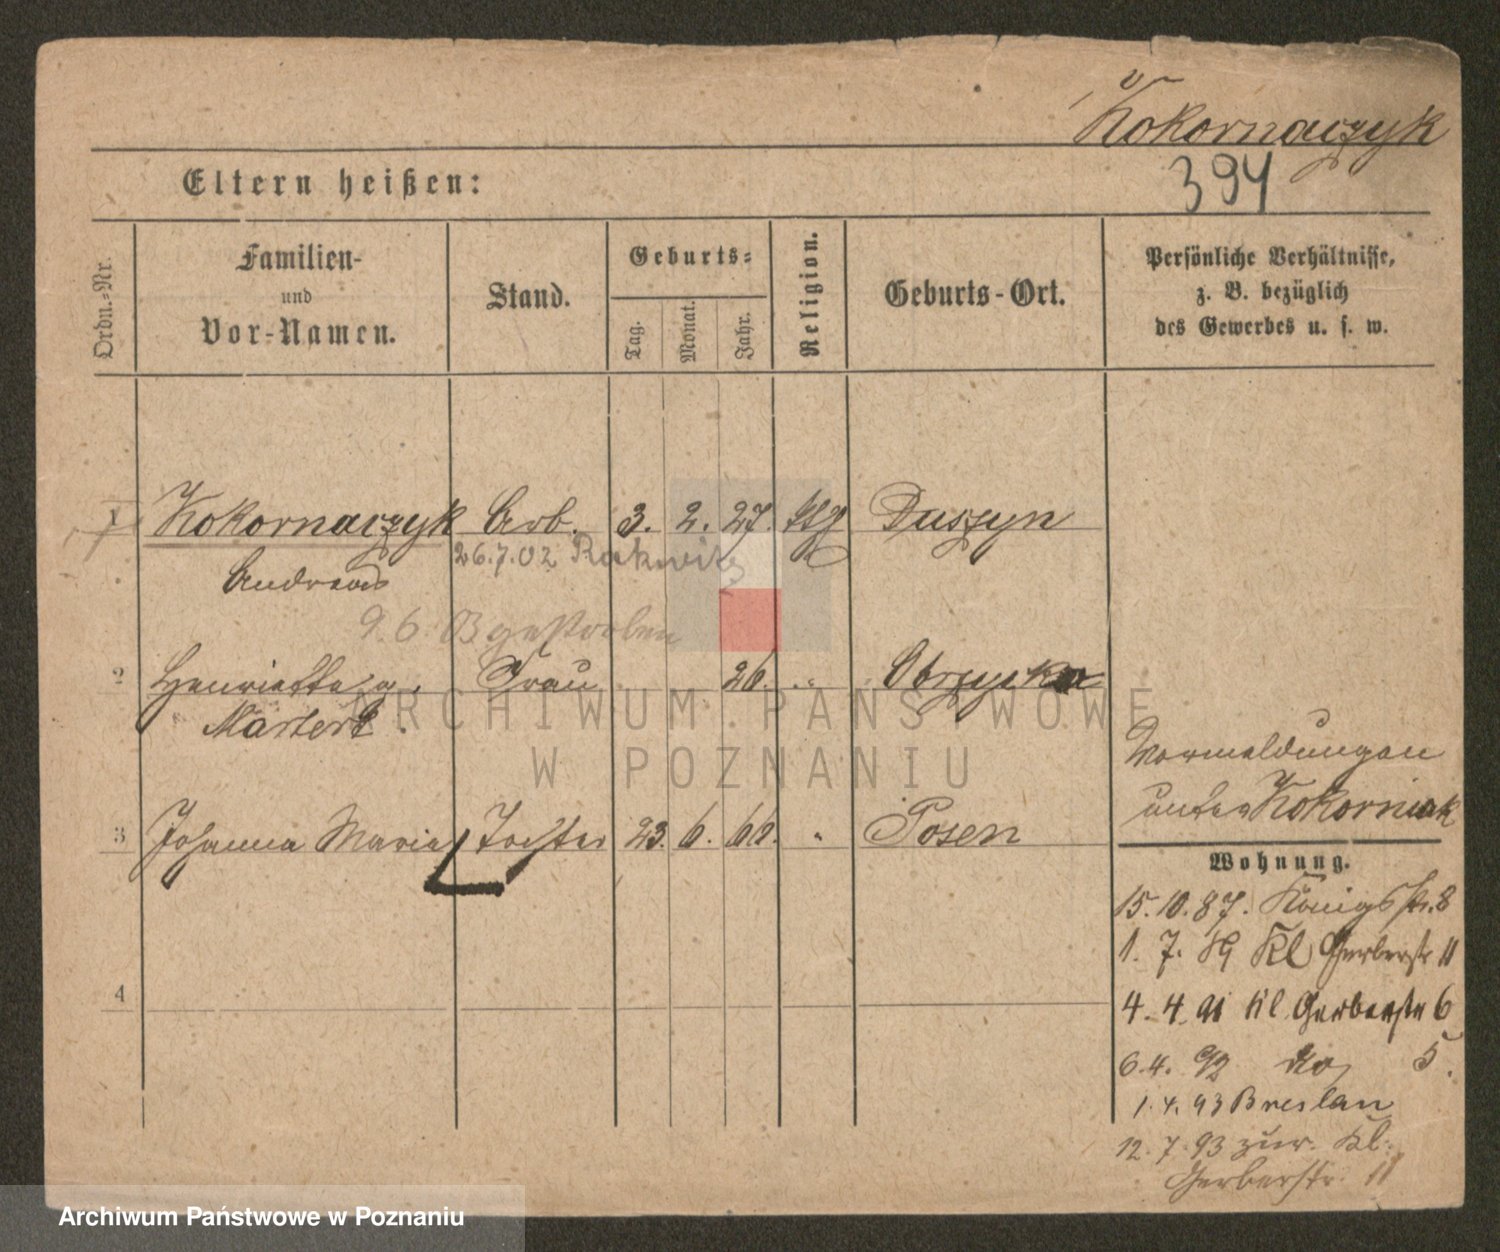 Kokornaczyk
394
Eltern heißen:
Ordn.-Nr.
Familien-
und
Vor-Namen.
Stand.
Geburts-
Tag.
Monat.
Jahr.
Religion.
Geburts-Ort.
Persönliche Verhältnisse,
z. B. bezüglich
des Gewerbes u. s. w.
1 Kokornaczyk Arb. 3. 2. 27. Duszyn
Andreas
26.7.02 Rakwitz
96 gestorben
2 Henriette g. Frau 26. " Obrzycko
Martert.
3 Johanna Maria Tochter 23. 6. 68. " Posen
4
Vormeldungen
unter Kokorniak
Wohnung.
15.10.87. Königsstr. 8
1. 7. 89 Kl Gerberstr 11
4. 4. 91 Kl. Gerberstr 6
6.4. 92 do 5.
1.4.93 Breslau
12.7.93 zur. Kl.
Gerberstr. 11
ARCHIWUM PAŃSTWOWE
W POZNANIU
Archiwum Państwowe w Poznaniu